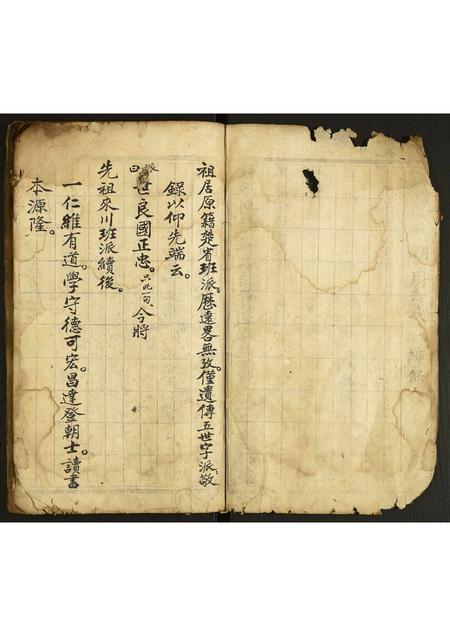 祖居原籍楚省班派。歷遠畧無攷。僅遺傳五世字派。敬
錄以仰先端云。
派曰 世良國正忠。只此一句。今將
先祖來川班派續後。
一仁維有道。學守德可宏。昌達登朝士。讀書
本源隆。